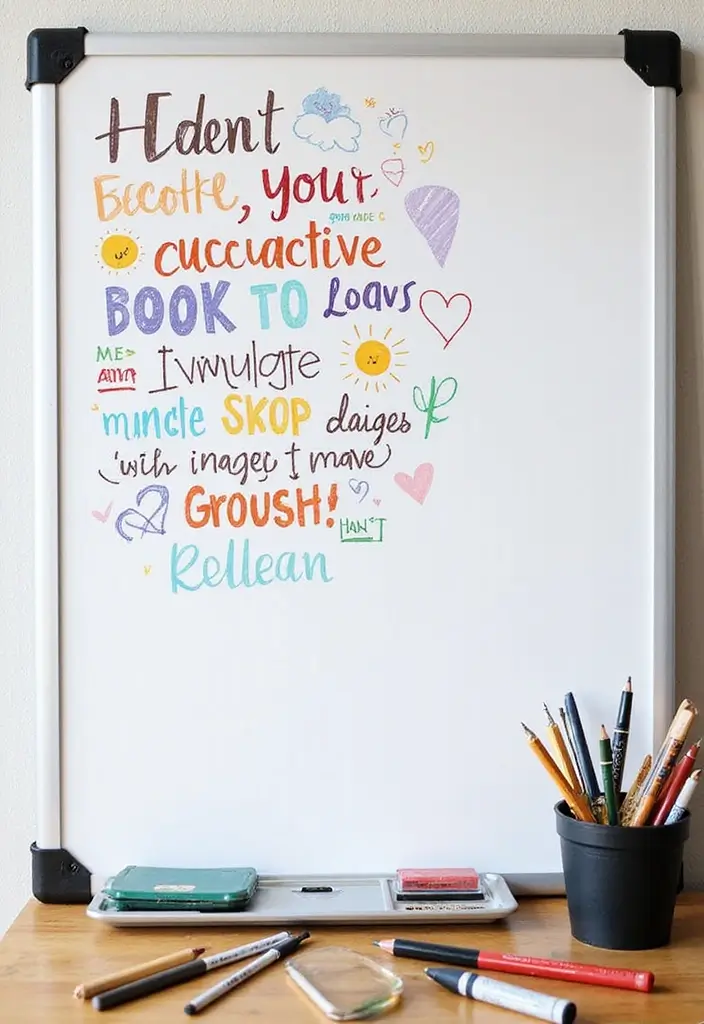 Hdent
your
cucuactive
BOOK TO Loavs
ME
Ivmulgte
mincte SKOP daiges
with inageç t mave
GROUSH!
HAN'T
Rellean